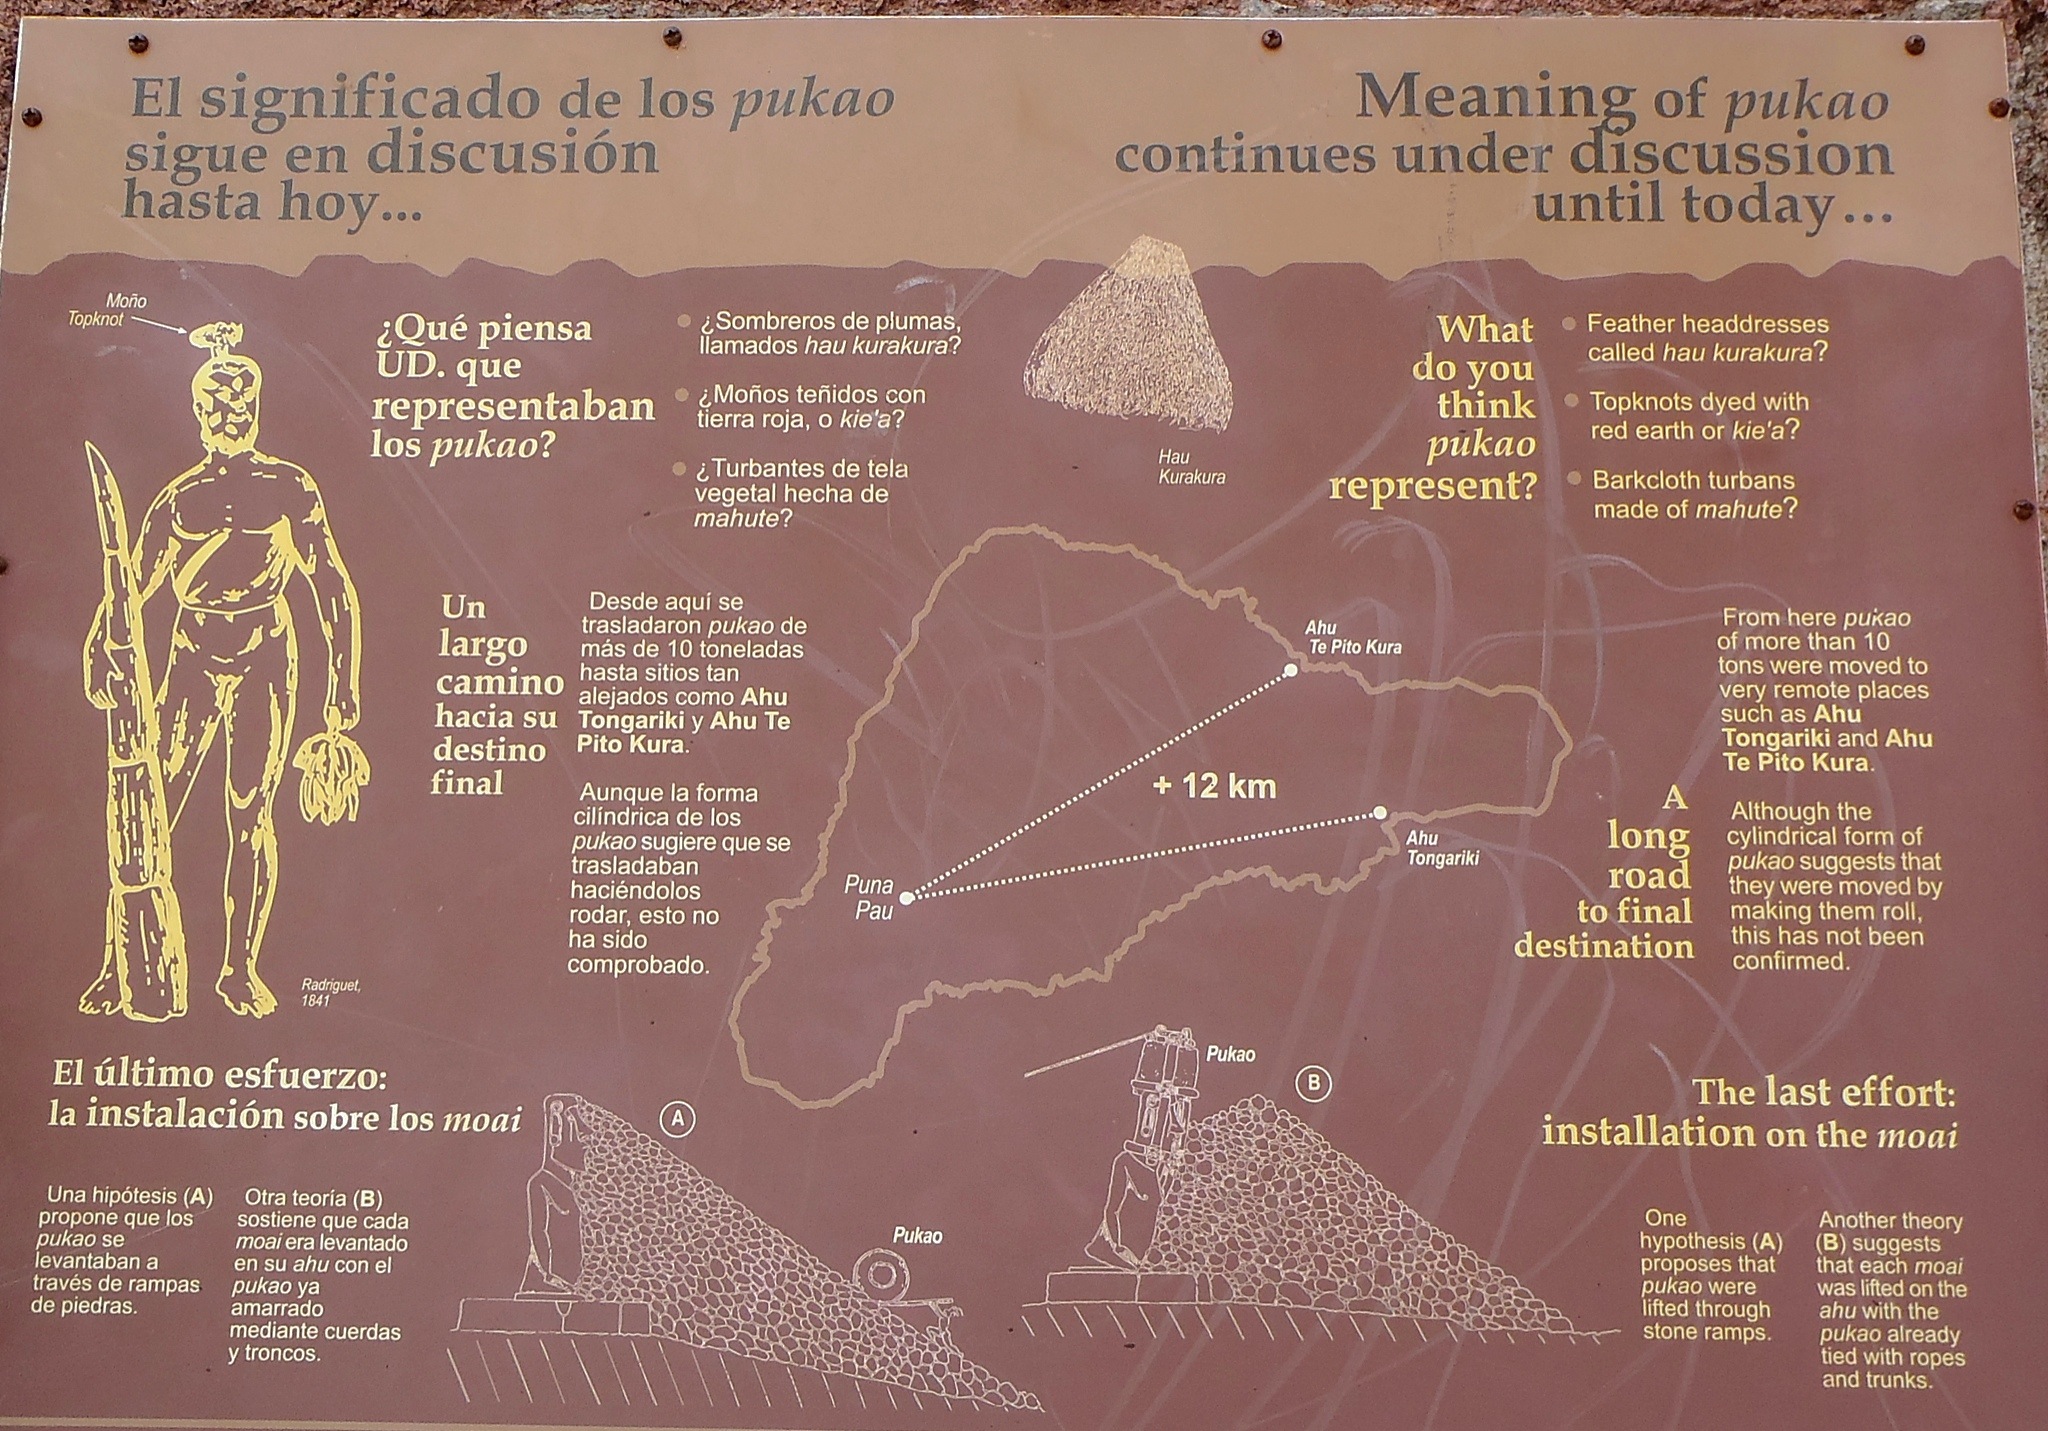 El significado de los pukao
sigue en discusión
hasta hoy...
Meaning of pukao
continues under discussion
until today...
Moño
Topknot
¿Qué piensa
UD. que
representaban
los pukao?
¿Sombreros de plumas,
llamados hau kurakura?
¿Moños teñidos con
tierra roja, o kie'a?
¿Turbantes de tela
vegetal hecha de
mahute?
Hau
Kurakura
What
do you
think
pukao
represent?
Feather headdresses
called hau kurakura?
Topknots dyed with
red earth or kie'a?
Barkcloth turbans
made of mahute?
Un
largo
camino
hacia su
destino
final
Desde aquí se
trasladaron pukao de
más de 10 toneladas
hasta sitios tan
alejados como Ahu
Tongariki y Ahu Te
Pito Kura.
Aunque la forma
cilíndrica de los
pukao sugiere que se
trasladaban
haciéndolos
rodar, esto no
ha sido
comprobado.
Ahu
Te Pito Kura
+ 12 km
Ahu
Tongariki
Puna
Pau
A
long
road
to final
destination
From here pukao
of more than 10
tons were moved to
very remote places
such as Ahu
Tongariki and Ahu
Te Pito Kura.
Although the
cylindrical form of
pukao suggests that
they were moved by
making them roll,
this has not been
confirmed.
Radriguet,
1841
El último esfuerzo:
la instalación sobre los moai
Una hipótesis (A)
propone que los
pukao se
levantaban a
través de rampas
de piedras.
Otra teoría (B)
sostiene que cada
moai era levantado
en su ahu con el
pukao ya
amarrado
mediante cuerdas
y troncos.
A
Pukao
Pukao
B
The last effort:
installation on the moai
One
hypothesis (A)
proposes that
pukao were
lifted through
stone ramps.
Another theory
(B) suggests
that each moai
was lifted on the
ahu with the
pukao already
tied with ropes
and trunks.